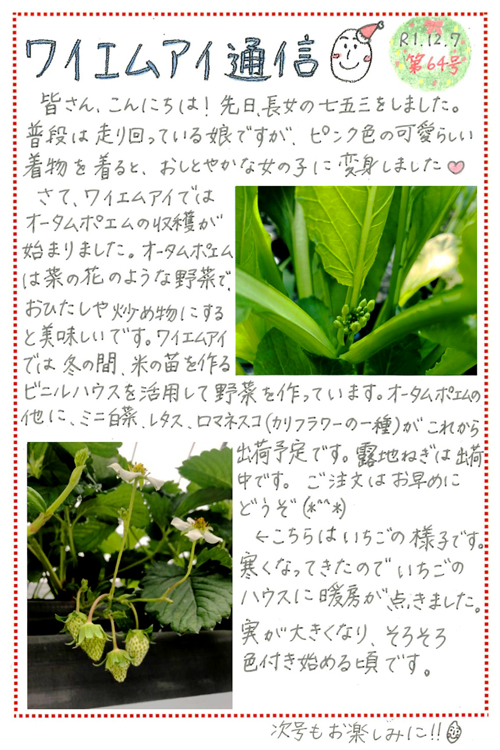 ワイエムアイ通信
R1.12.7
第64号
皆さん、こんにちは！先日、長女の七五三をしました。
普段は走り回っている娘ですが、ピンク色の可愛らしい
着物を着ると、おしとやかな女の子に変身しました♡
さて、ワイエムアイでは
オータムポエムの収穫が
始まりました。オータムポエム
は菜の花のような野菜で、
おひたしや炒め物にする
と美味しいです。ワイエムアイ
では冬の間、米の苗を作る
ビニルハウスを活用して野菜を作っています。オータムポエムの
他に、ミニ白菜、レタス、ロマネスコ(カリフラワーの一種)がこれから
出荷予定です。露地ねぎは出荷
中です。ご注文はお早めに
どうぞ(*^^*)
←こちらはいちごの様子です。
寒くなってきたのでいちごの
ハウスに暖房が点きました。
実が大きくなり、そろそろ
色付き始める頃です。
次号もお楽しみに!!